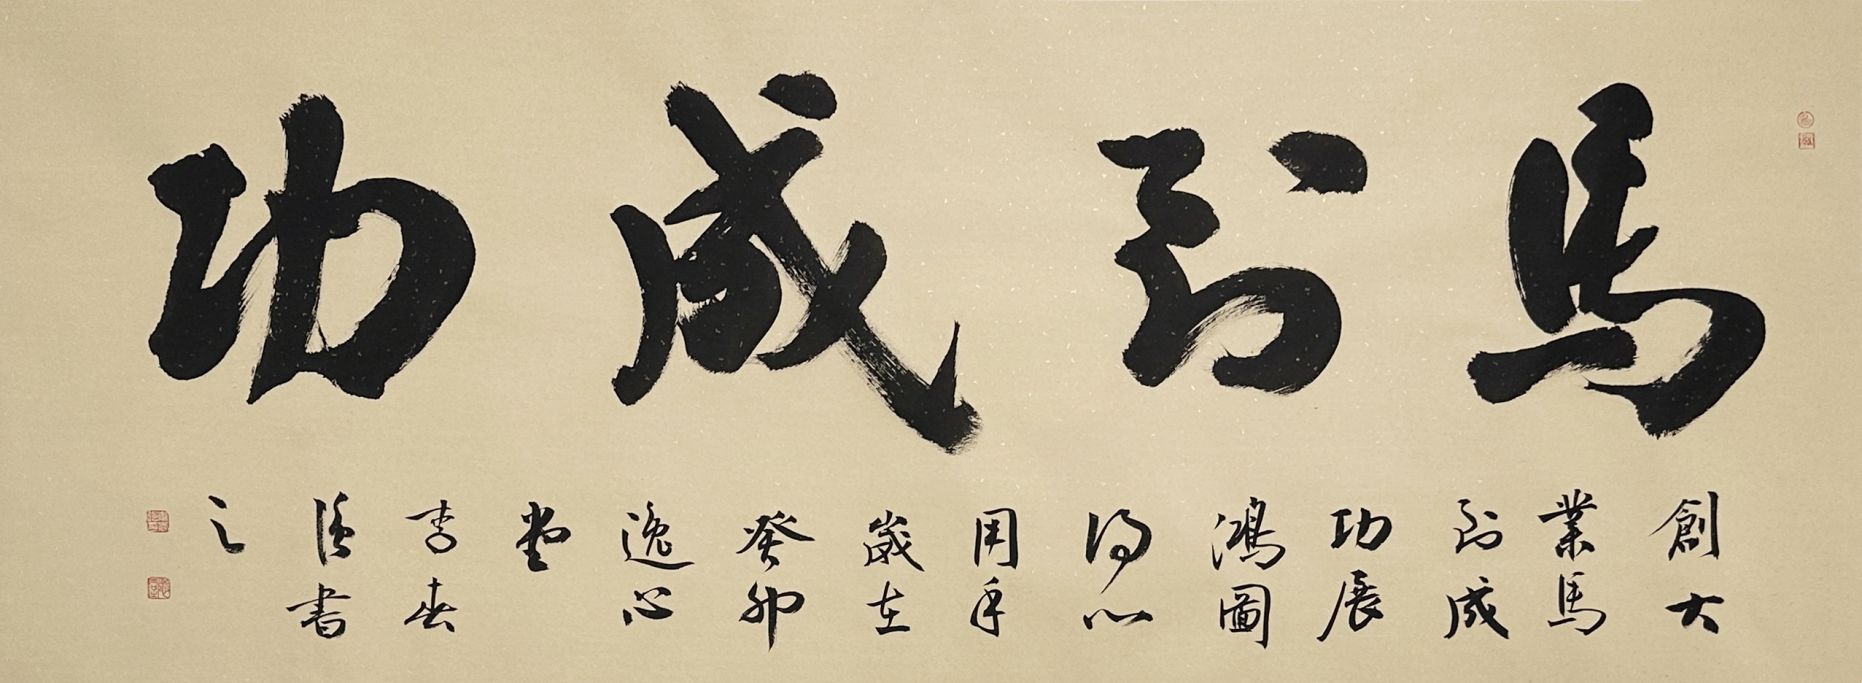 馬到成功
創大
業馬
到成
功展
鴻圖
得心
用手
歲在
癸卯
逸心
堂
李春
書
之